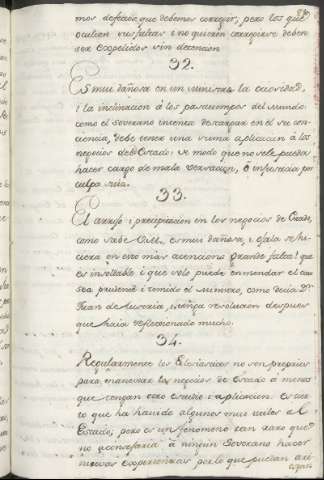 mos defectos que debemos corregir, pero los que
ocultan sus faltas i no quieren corregirse deben
ser expelidos sin detencion
32.
Es mui dañosa en un ministro la ociosidad,
i la inclinacion á los pasatiempos del mundo
como el soverano intenta descargar en él su con-
ciencia, debe tener una suma aplicacion á los
negocios del Estado de modo que no se le pueda
hacer cargo de mala versacion, ò injusticia por
culpa suia.
33.
El arrojo i precipitacion en los negocios de Estado,
como sabe es mui dañosa, i ojala se hi-
ciera en esto mas atencion grande falta! que
es i que solo puede enmendar el
prudente i temido el ministro, como decia Dn
Juan de Austria, i tenga resolucion despues
que haia reflecsionado mucho.
34.
Regularmente los Eclesiasticos no son proprios
para manexar los negocios de Estado á menos
que tengan otro estudio i aplicacion. Es cier-
to que ha havido algunos mui utiles al
Estado; pero es un fenomeno tan raro que
no aconsejaria à ningun Soverano hacer
nuevas experiencias por lo que puedan